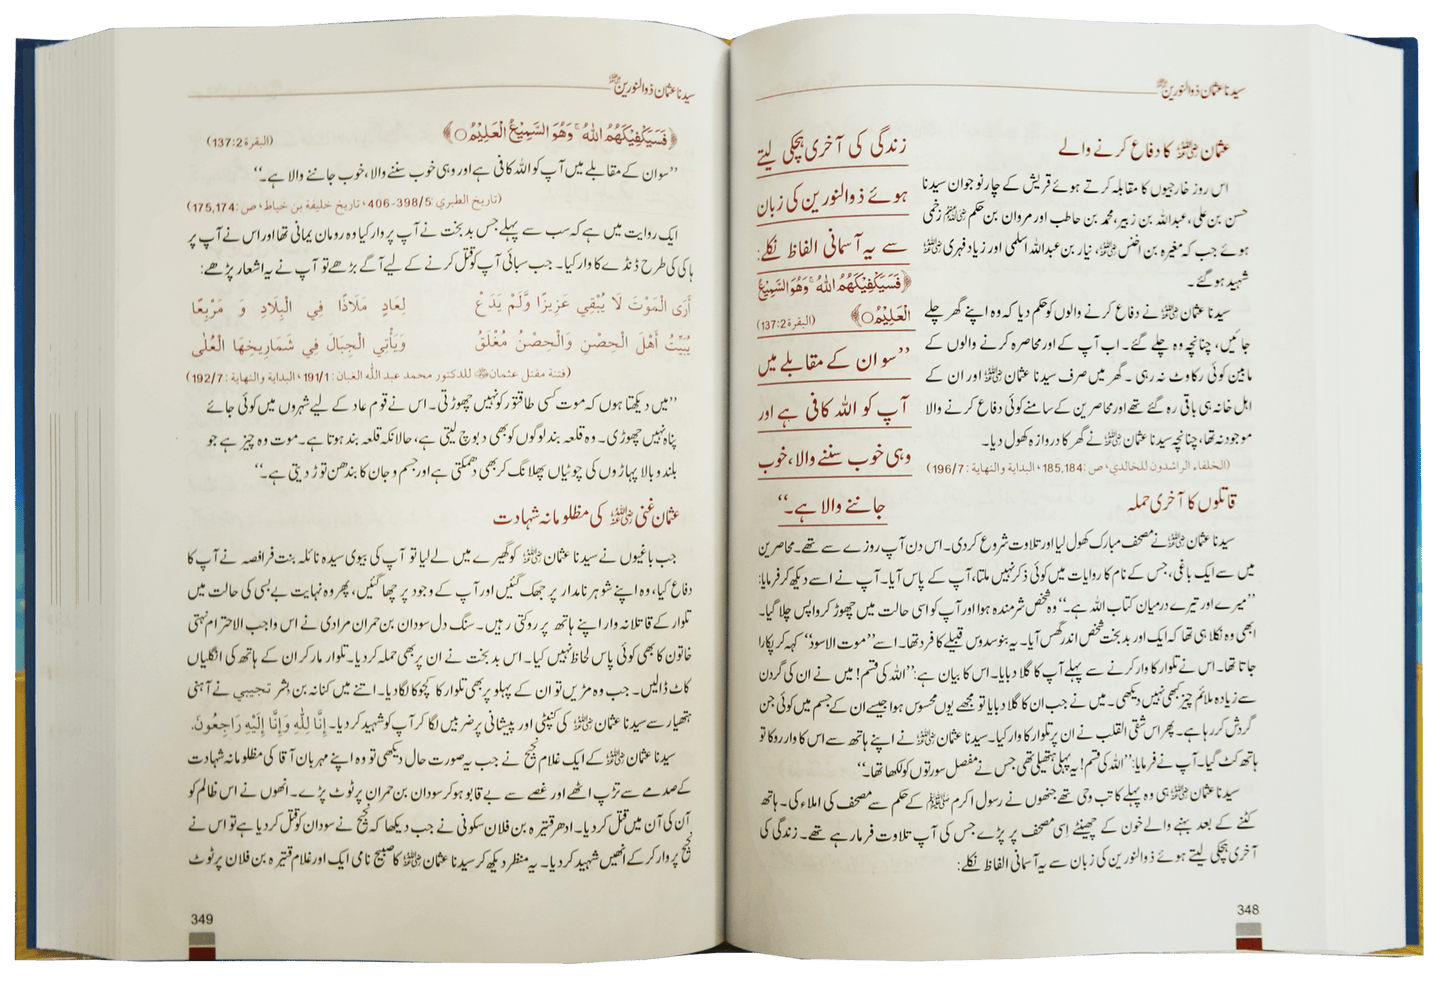 سیدنا عثمان ذوالنورین رضی اللہ عنہ
عثمان رضی اللہ عنہ کا دفاع کرنے والے
اس روز خارجیوں کا مقابلہ کرتے ہوئے قریش کے چار نوجوان سیدنا
حسن بن علی، عبداللہ بن زبیر، محمد بن حاطب اور مروان بن حکم رضی اللہ عنہم زخمی
ہوئے جب کہ مغیرہ بن اخنس رضی اللہ عنہ، نیار بن عبداللہ اسلمی اور زیاد فہری رضی اللہ عنہ
شہید ہو گئے۔
سیدنا عثمان رضی اللہ عنہ نے دفاع کرنے والوں کو حکم دیا کہ وہ اپنے گھر چلے
جائیں، چنانچہ وہ چلے گئے۔ اب آپ کے اور محاصرہ کرنے والوں کے
مابین کوئی رکاوٹ نہ رہی۔ گھر میں صرف سیدنا عثمان رضی اللہ عنہ اور ان کے
اہل خانہ ہی باقی رہ گئے تھے اور محاصرین کے سامنے کوئی دفاع کرنے والا
موجود نہ تھا، چنانچہ سیدنا عثمان رضی اللہ عنہ نے گھر کا دروازہ کھول دیا۔
(الخلفاء الراشدون للخالدي، ص: 185,184، البداية والنهاية: 196/7)
زندگی کی آخری ہچکی لیتے
ہوئے ذوالنورین کی زبان
سے یہ آسمانی الفاظ نکلے:
﴿فَسَيَكْفِيكَهُمُ اللّٰهُ ۚ وَهُوَ السَّمِيْعُ
الْعَلِيْمُ○﴾ (البقرة 137:2)
’’سو ان کے مقابلے میں
آپ کو اللہ کافی ہے اور
وہی خوب سننے والا، خوب
جاننے والا ہے۔‘‘
قاتلوں کا آخری حملہ
سیدنا عثمان رضی اللہ عنہ نے مصحف مبارک کھول لیا اور تلاوت شروع کر دی۔ اس دن آپ روزے سے تھے۔ محاصرین
میں سے ایک باغی، جس کے نام کا روایات میں کوئی ذکر نہیں ملتا، آپ کے پاس آیا۔ آپ نے اسے دیکھ کر فرمایا:
’’میرے اور تیرے درمیان کتاب اللہ ہے۔‘‘ وہ شخص شرمندہ ہوا اور آپ کو اسی حالت میں چھوڑ کر واپس چلا گیا۔
ابھی وہ نکلا ہی تھا کہ ایک اور بدبخت شخص اندر گھس آیا۔ یہ بنو سدوس قبیلے کا فرد تھا۔ اسے ’’موت الاسود‘‘ کہہ کر پکارا
جاتا تھا۔ اس نے تلوار کا وار کرنے سے پہلے آپ کا گلا دبایا۔ اس کا بیان ہے: ’’اللہ کی قسم! میں نے ان کی گردن
سے زیادہ ملائم چیز کبھی نہیں دیکھی۔ میں نے جب ان کا گلا دبایا تو مجھے یوں محسوس ہوا جیسے ان کے جسم میں کوئی جن
گردش کر رہا ہے۔ پھر اس شقی القلب نے ان پر تلوار کا وار کیا۔ سیدنا عثمان رضی اللہ عنہ نے اپنے ہاتھ سے اس کا وار روکا تو
ہاتھ کٹ گیا۔ آپ نے فرمایا: ’’اللہ کی قسم! یہ پہلی ہتھیلی تھی جس نے مفصل سورتوں کو لکھا تھا۔‘‘
سیدنا عثمان رضی اللہ عنہ ہی وہ پہلے کاتب وحی تھے جنھوں نے رسول اکرم ﷺ کے حکم سے مصحف کی املاء کی۔ ہاتھ
کٹنے کے بعد بہنے والے خون کے چھینٹے اِسی مصحف پر پڑے جس کی آپ تلاوت فرما رہے تھے۔ زندگی کی
آخری ہچکی لیتے ہوئے ذوالنورین کی زبان سے یہ آسمانی الفاظ نکلے:
348
سیدنا عثمان ذوالنورین رضی اللہ عنہ
﴿فَسَيَكْفِيكَهُمُ اللّٰهُ ۚ وَهُوَ السَّمِيْعُ الْعَلِيْمُ○﴾ (البقرة 137:2)
’’سو ان کے مقابلے میں آپ کو اللہ کافی ہے اور وہی خوب سننے والا، خوب جاننے والا ہے۔‘‘
(تاريخ الطبري: 398/5-406، تاريخ خليفة بن خياط، ص: 175,174)
ایک روایت میں ہے کہ سب سے پہلے جس بدبخت نے آپ پر وار کیا وہ رومان یمانی تھا اور اس نے آپ پر
ہاکی کی طرح ڈنڈے کا وار کیا۔ جب سبائی آپ کو قتل کرنے کے لیے آگے بڑھے تو آپ نے یہ اشعار پڑھے:
أَرَى الْمَوْتَ لَا يُبْقِي عَزِيزًا وَّلَمْ يَدَعْ لِعَادٍ مَلَاذًا فِي الْبِلَادِ وَ مَرْبِعًا
يُبَيِّتُ أَهْلَ الْحِصْنِ وَالْحِصْنُ مُغْلَقٌ وَيَأْتِي الْجِبَالَ فِي شَمَارِيخِهَا الْعُلٰى
(فتنة مقتل عثمان رضی اللہ عنہ للدكتور محمد عبد الله الغبان: 191/1، البداية والنهاية: 192/7)
’’میں دیکھتا ہوں کہ موت کسی طاقتور کو نہیں چھوڑتی۔ اس نے قوم عاد کے لیے شہروں میں کوئی جائے
پناہ نہیں چھوڑی۔ وہ قلعہ بند لوگوں کو بھی دبوچ لیتی ہے، حالانکہ قلعہ بند ہوتا ہے۔ موت وہ چیز ہے جو
بلند و بالا پہاڑوں کی چوٹیاں پھلانگ کر بھی آدھمکتی ہے اور جسم و جان کا بندھن توڑ دیتی ہے۔‘‘
عثمان غنی رضی اللہ عنہ کی مظلومانہ شہادت
جب باغیوں نے سیدنا عثمان رضی اللہ عنہ کو گھیرے میں لے لیا تو آپ کی بیوی سیدہ نائلہ بنت فرافصہ نے آپ کا
دفاع کیا، وہ اپنے شوہر نامدار پر جھک گئیں اور آپ کے وجود پر چھا گئیں، پھر وہ نہایت بے بسی کی حالت میں
تلوار کے قاتلانہ وار اپنے ہاتھ پر روکتی رہیں۔ سنگ دل سودان بن حمران مرادی نے اس واجب الاحترام نہتی
خاتون کا بھی کوئی پاس لحاظ نہیں کیا۔ اس بدبخت نے ان پر بھی حملہ کر دیا۔ تلوار مار کر ان کے ہاتھ کی انگلیاں
کاٹ ڈالیں۔ جب وہ مڑیں تو ان کے پہلو پر بھی تلوار کا کچوکا لگا دیا۔ اتنے میں کنانہ بن بشر تجیبی نے آہنی
ہتھیار سے سیدنا عثمان رضی اللہ عنہ کی کنپٹی اور پیشانی پر ضربیں لگا کر آپ کو شہید کر دیا۔ إِنَّا لِلّٰهِ وَإِنَّا إِلَيْهِ رَاجِعُونَ.
سیدنا عثمان رضی اللہ عنہ کے ایک غلام نجیح نے جب یہ صورت حال دیکھی تو وہ اپنے مہربان آقا کی مظلومانہ شہادت
کے صدمے سے تڑپ اٹھے اور غصے سے بے قابو ہو کر سودان بن حمران پر ٹوٹ پڑے۔ انھوں نے اس ظالم کو
آن کی آن میں قتل کر دیا۔ ادھر قتیرہ بن فلان سکونی نے جب دیکھا کہ نجیح نے سودان کو قتل کر دیا ہے تو اس نے
نجیح پر وار کر کے انھیں شہید کر دیا۔ یہ منظر دیکھ کر سیدنا عثمان رضی اللہ عنہ کا صبیح نامی ایک اور غلام قتیرہ بن فلان پر ٹوٹ
349